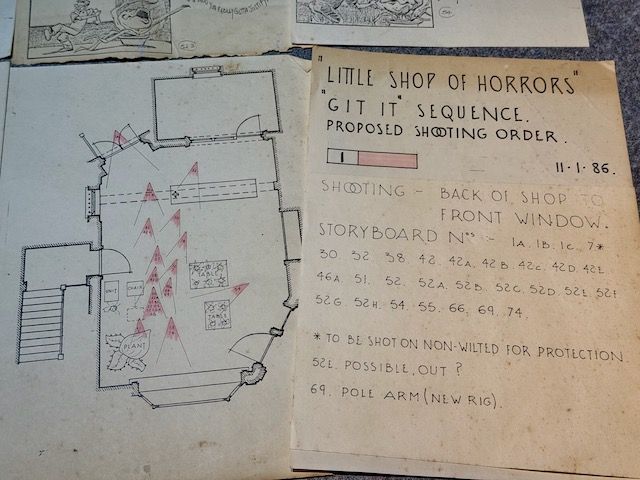 "LITTLE SHOP OF HORRORS"
"GIT IT" SEQUENCE.
PROPOSED SHOOTING ORDER.
1
11·1·86.
SHOOTING :- BACK OF SHOP TO
FRONT WINDOW.
STORYBOARD Nos :- 1A, 1B, 1C, 7*
30. 32. 38. 42. 42A. 42B. 42C. 42D. 42E.
46A. 51. 52. 52A. 52B. 52C. 52D. 52E. 52F.
52G. 52H. 54. 55. 66. 69. 74.
* TO BE SHOT ON NON-WILTED FOR PROTECTION.
52E. POSSIBLE, OUT ?
69. POLE ARM (NEW RIG).
TABLE
TABLE
CHAIR
PLANT